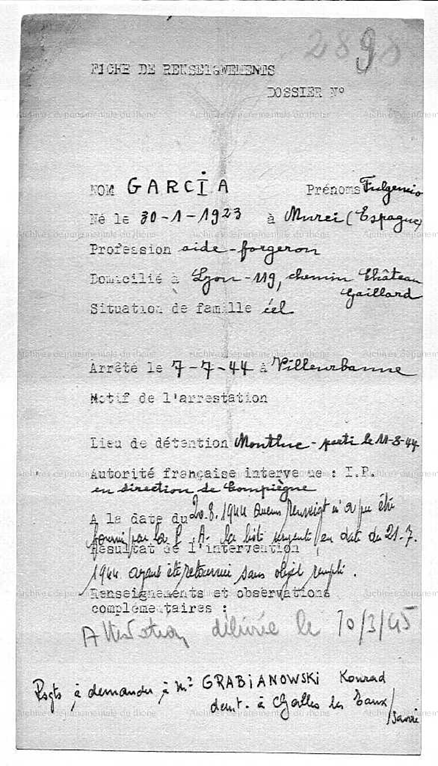 2898
FICHE DE RENSEIGNEMENTS
DOSSIER N°
NOM GARCIA Prénoms Fulgencio
Né le 30-1-1923 à Murci (Espagne)
Profession aide-forgeron
Domicilié à Lyon-119, chemin Château
Gaillard
Situation de famille cél
Arrêté le 7-7-44 à Villeurbanne
Motif de l'arrestation
Lieu de détention Montluc - parti le 11-8-44
Autorité française intervenue : I.P.
en direction de Compiègne
A la date du 20.8.1944 aucun renseigt n'a pu être
fourni par la P. A. la liste en date du 21.7.
Résultat de l'intervention
1944 ayant été retournée sans objet rempli.
Renseignements et observations
complémentaires :
Attestation délivrée le 10/3/45
Rsgts à demander à Mr GRABIANOWSKI Konrad
demt. à Challes les Eaux/Savoie
Archives départementales du Rhône